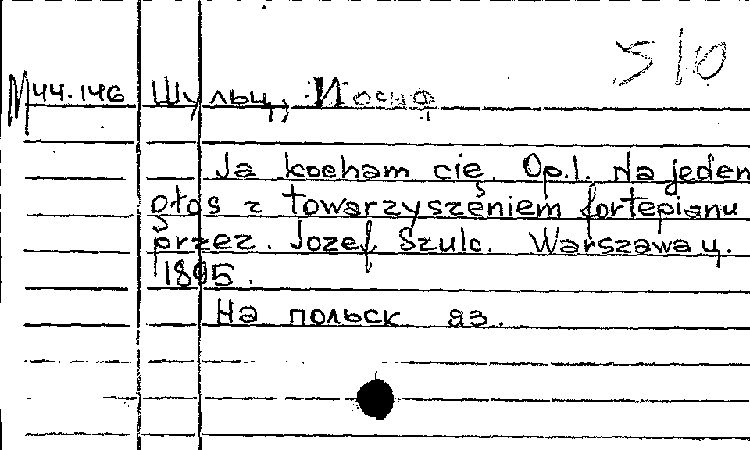 5/0
M 44.146 Шульц, Иосиф
Ja kocham cię. Op.1. Na jeden
głos z towarzyszeniem fortepianu
przez. Jozef Szulc. Warszawa y.
1895.
На польск яз.